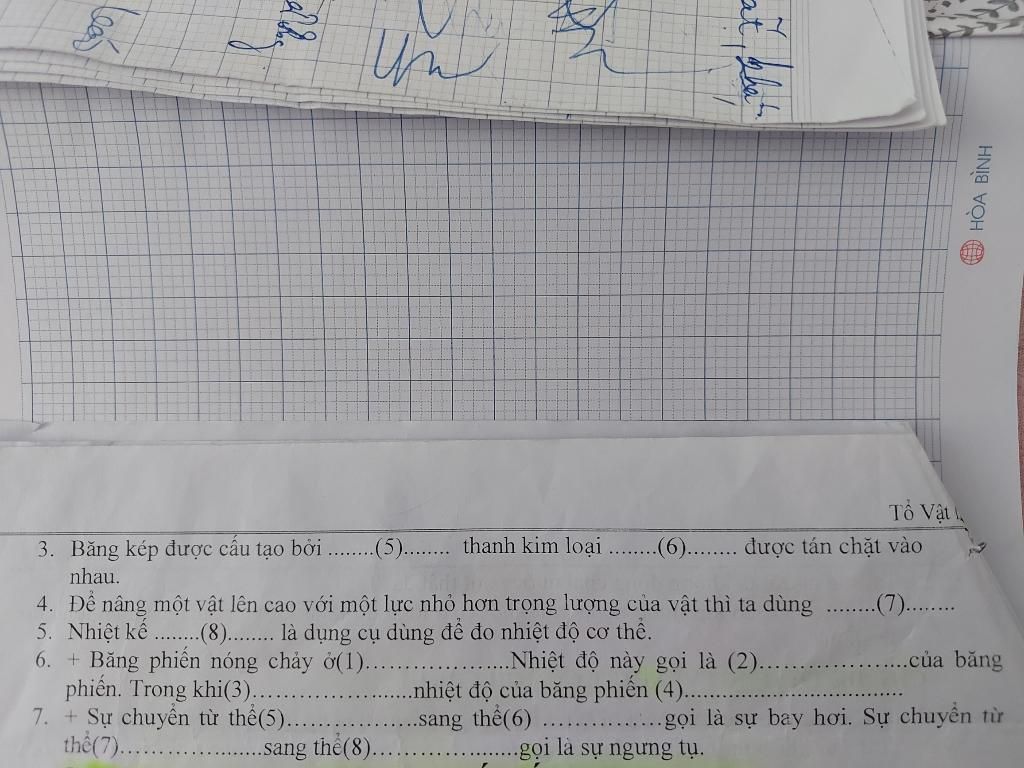 HÒA BÌNH
Tổ Vật
3. Băng kép được cấu tạo bởi ........(5)........ thanh kim loại ........(6)........ được tán chặt vào
nhau.
4. Để nâng một vật lên cao với một lực nhỏ hơn trọng lượng của vật thì ta dùng ........(7)........
5. Nhiệt kế ........(8)........ là dụng cụ dùng để đo nhiệt độ cơ thể.
6. + Băng phiến nóng chảy ở(1)......................Nhiệt độ này gọi là (2)......................của băng
phiến. Trong khi(3)........................nhiệt độ của băng phiến (4)...................................
7. + Sự chuyển từ thể(5)....................sang thể(6) ..................gọi là sự bay hơi. Sự chuyển từ
thể(7)......................sang thể(8)......................gọi là sự ngưng tụ.